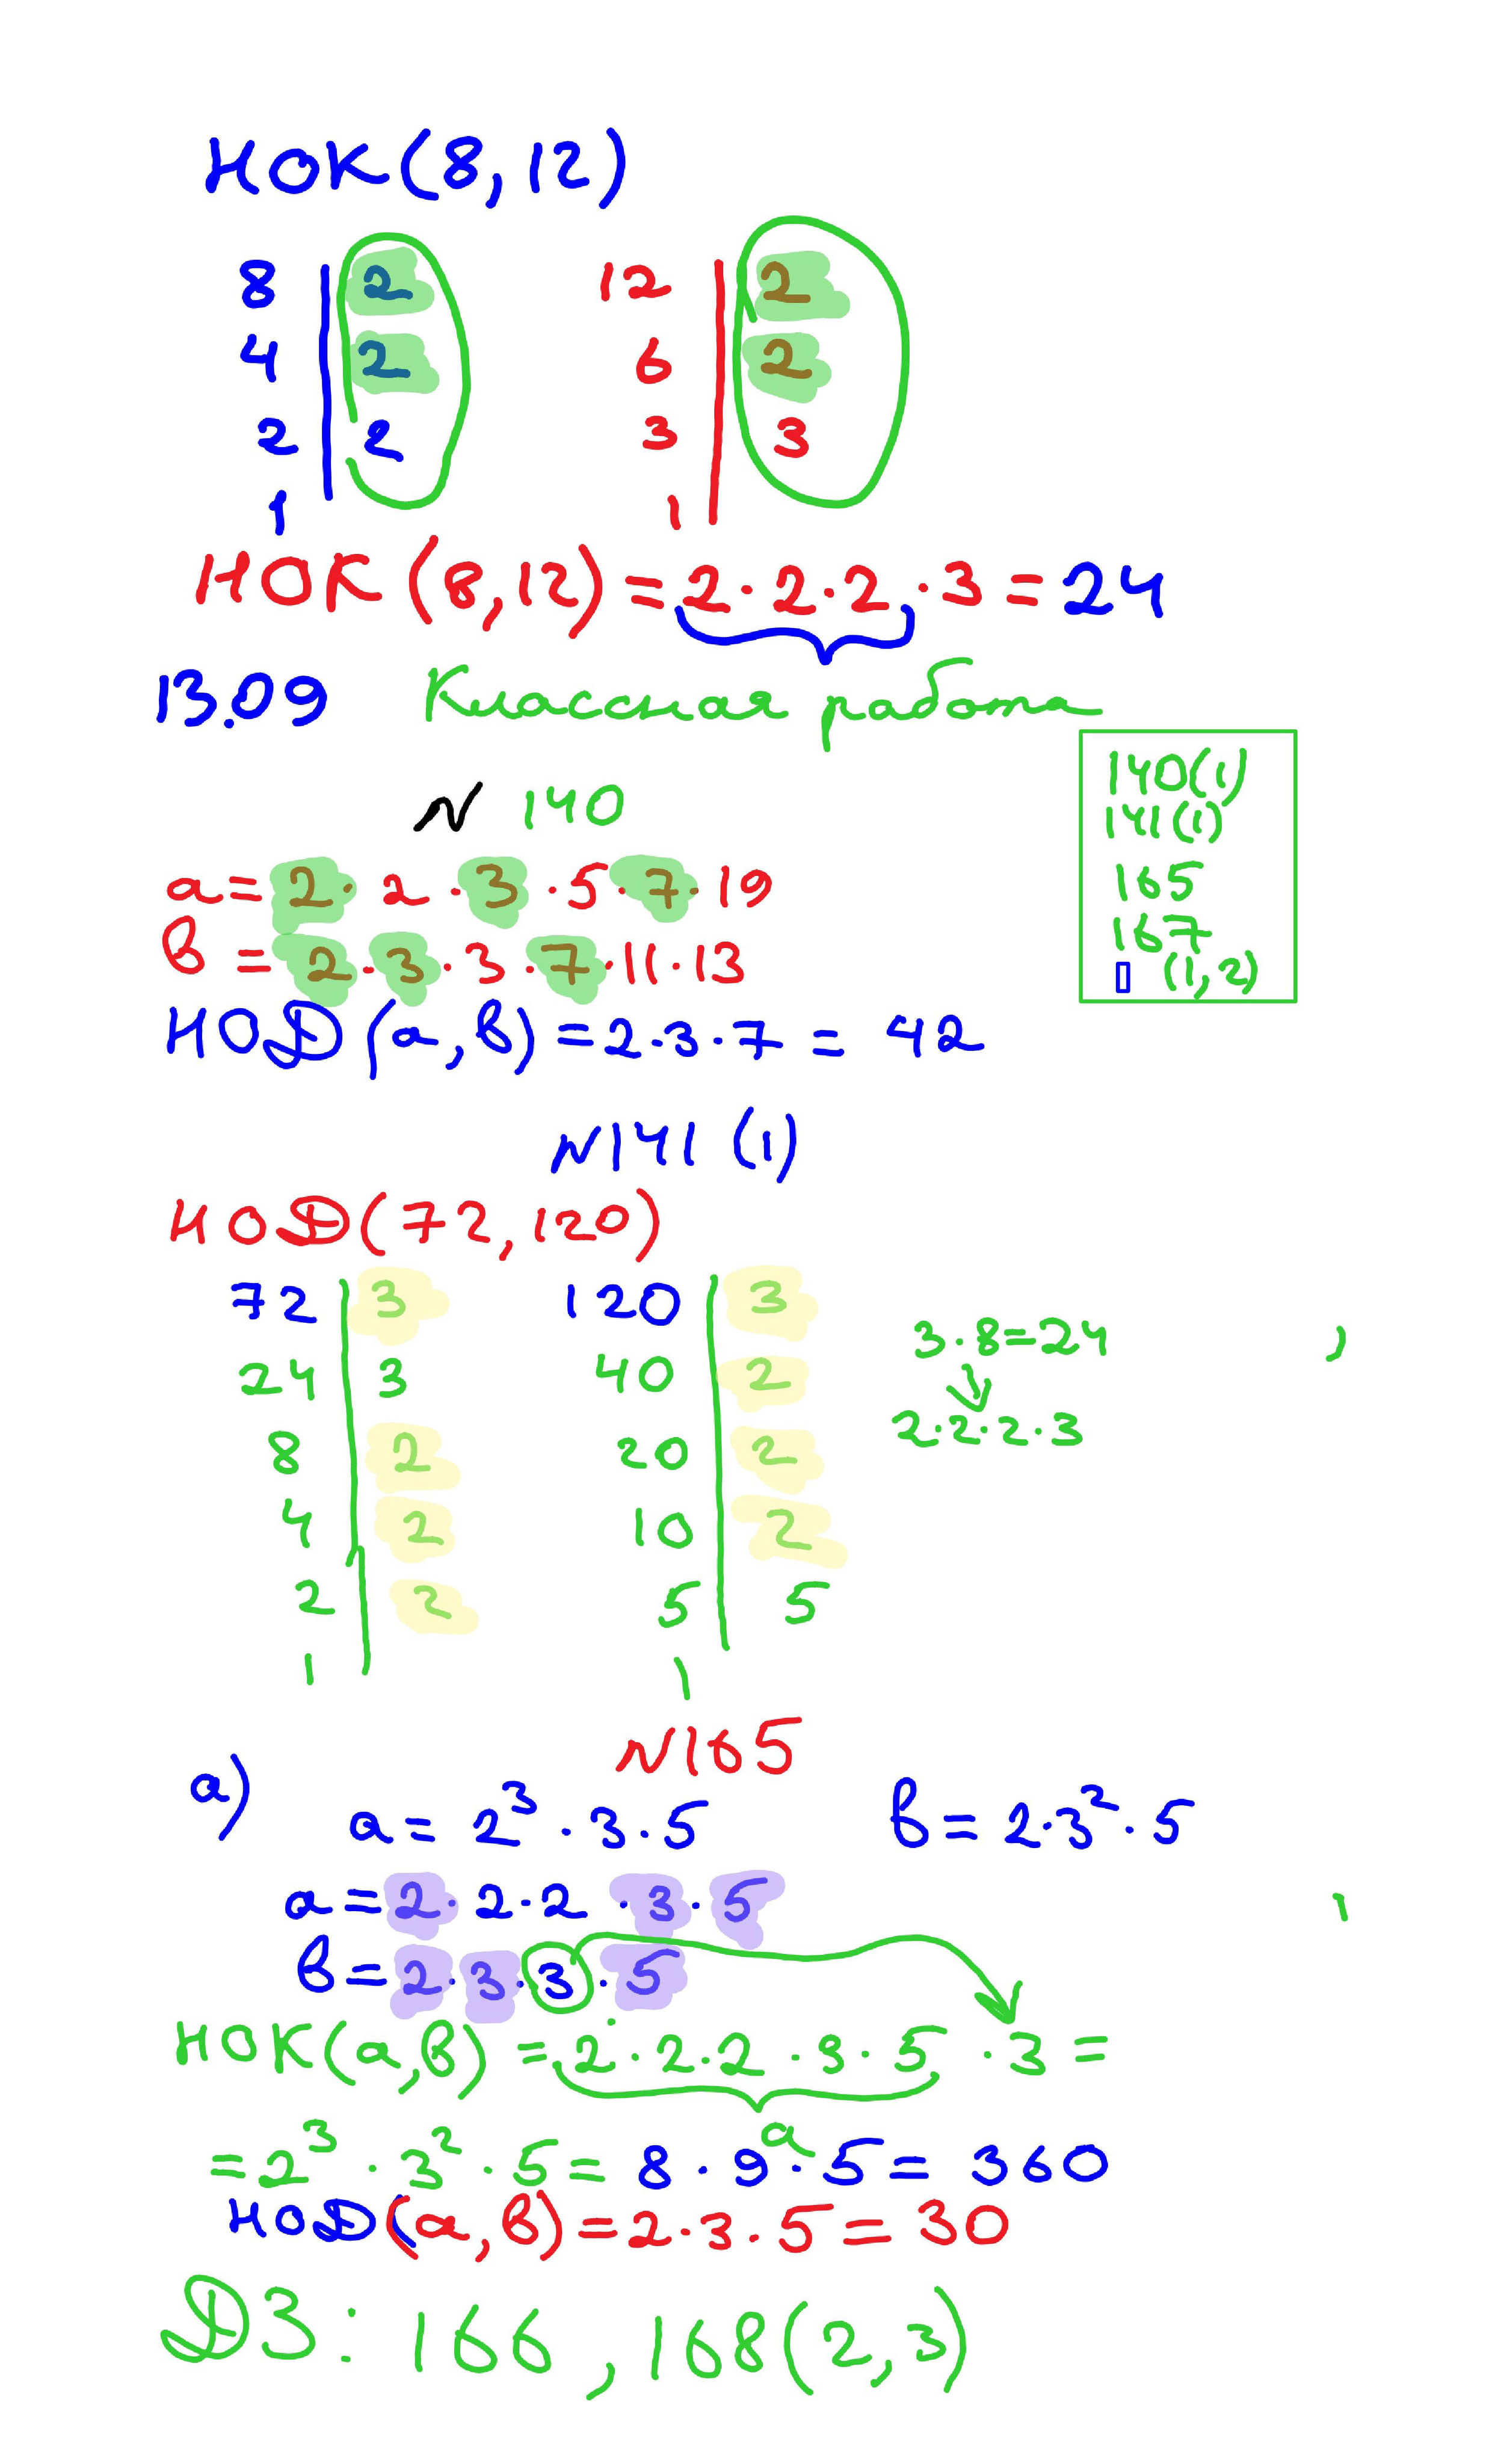 НОК(8,12)
8 | 2 12 | 2
4 | 2 6 | 2
2 | 2 3 | 3
1 | 1 |
НОК(8,12) = 2·2·2·3 = 24
13.09 Классная работа
140(1)
141(1)
165
167
(1,2)
N 140
a = 2·2·3·5·7·19
в = 2·3·3·7·11·13
НОД(а,в) = 2·3·7 = 42
N141 (1)
НОД(72,120)
72 | 3 120 | 3
24 | 3 40 | 2
8 | 2 20 | 2
4 | 2 10 | 2
2 | 2 5 | 5
1 | 1 |
3·8=24
2·2·2·3
N165
а) a = 2³·3·5 в = 2·3²·5
a = 2·2·2·3·5
в = 2·3·3·5
НОК(а,в) = 2·2·2·3·5·3 =
a
= 2³·3²·5 = 8·9·5 = 360
НОД(а,в) = 2·3·5 = 30
ДЗ: 166, 168(2,3)